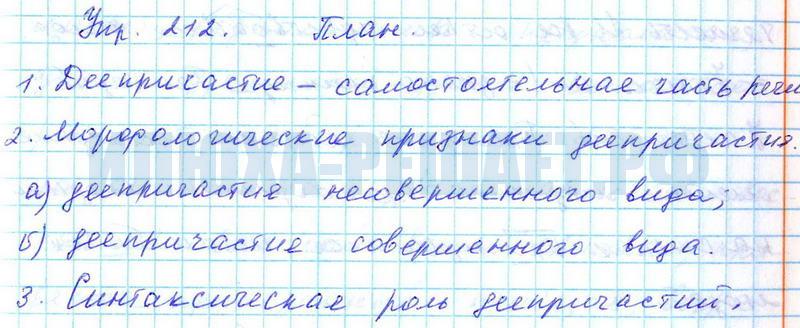 Упр. 212. План.
1. Деепричастие – самостоятельная часть речи
2. Морфологические признаки деепричастия.
а) деепричастия несовершенного вида;
б) деепричастие совершенного вида.
3. Синтаксическая роль деепричастий.
ИЛЮХА-РЕШАЕТ.РФ